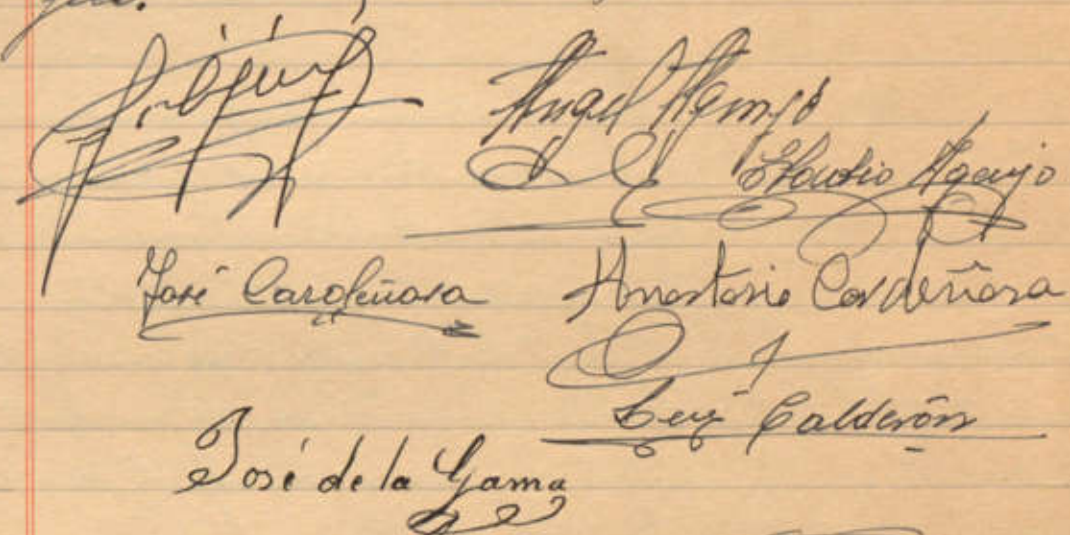 que.
Angel Asenjo
Asenjo
José Cardeñosa
Anastasio Cardeñosa
Luis Calderón
José de la Gama